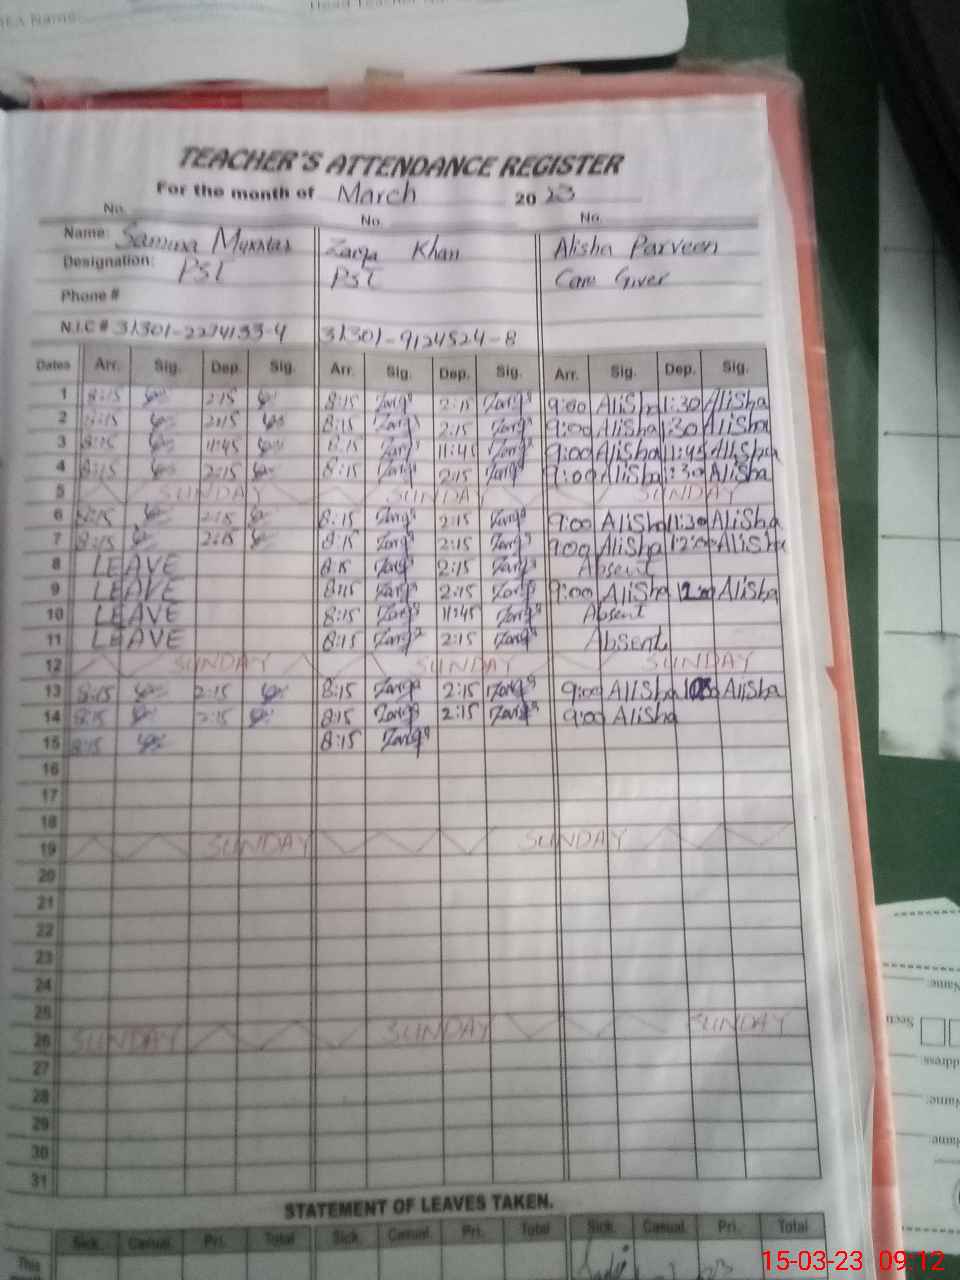 Name:
Head Teacher
TEACHER'S ATTENDANCE REGISTER
For the month of March 2023
No. No. No.
Name: Samina Mukhtar Zarqa Khan Alisha Parveen
Designation: PST PST Care Giver
Phone #
N.I.C # 31301-2274133-4 31301-9124524-8
Dates Arr. Sig. Dep. Sig. Arr. Sig. Dep. Sig. Arr. Sig. Dep. Sig.
1 8:15 2:15 8:15 Zarqa 2:15 Zarqa 9:00 AliSha 1:30 AliSha
2 8:15 2:15 8:15 Zarqa 2:15 Zarqa 9:00 AliSha 1:30 AliSha
3 8:15 11:45 8:15 Zarqa 11:45 Zarqa 9:00 AliSha 11:45 AliSha
4 8:15 2:15 8:15 Zarqa 2:15 Zarqa 9:00 AliSha 1:30 AliSha
5 SUNDAY SUNDAY SUNDAY
6 8:15 2:15 8:15 Zarqa 2:15 Zarqa 9:00 AliSha 1:30 AliSha
7 8:15 2:15 8:15 Zarqa 2:15 Zarqa 9:00 AliSha 12:00 AliSha
8 LEAVE 8:15 Zarqa 2:15 Zarqa Absent
9 LEAVE 8:15 Zarqa 2:15 Zarqa 9:00 AliSha AliSha
10 LEAVE 8:15 Zarqa 11:45 Zarqa Absent
11 LEAVE 8:15 Zarqa 2:15 Zarqa Absent
12 SUNDAY SUNDAY SUNDAY
13 8:15 2:15 8:15 Zarqa 2:15 Zarqa 9:00 AliSha AliSha
14 8:15 2:15 8:15 Zarqa 2:15 Zarqa 9:00 AliSha
15 8:15 8:15 Zarqa
16
17
18
19 SUNDAY SUNDAY
20
21
22
23
24
25
26 SUNDAY SUNDAY SUNDAY
27
28
29
30
31
STATEMENT OF LEAVES TAKEN.
Sick. Casual. Pri. Total Sick. Casual. Pri. Total Sick. Casual. Pri. Total
This
15-03-23 09:12